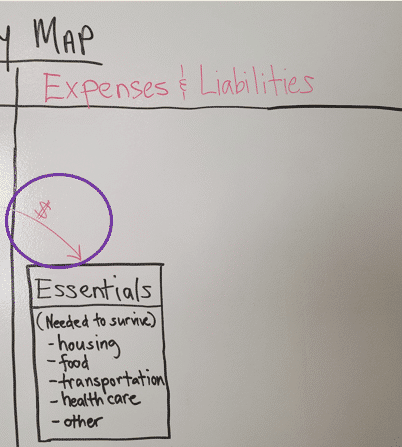 y MAP
Expenses & Liabilities
$
Essentials
(Needed to survive)
- housing
- food
- transportation
- health care
- other